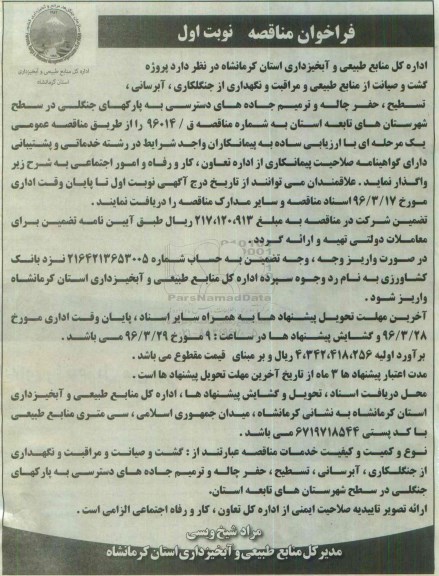 فراخوان مناقصه نوبت اول
اداره کل منابع طبیعی و آبخیزداری
استان کرمانشاه
اداره کل منابع طبیعی و آبخیزداری استان کرمانشاه در نظر دارد پروژه
گشت و صیانت از منابع طبیعی و مراقبت و نگهداری از جنگلکاری ، آبرسانی ،
تسطیح ، حفر چاله و ترمیم جاده های دسترسی به پارکهای جنگلی در سطح
شهرستان های تابعه استان به شماره مناقصه ق / ۹۶۰۱۴ را از طریق مناقصه عمومی
یک مرحله ای با ارزیابی ساده به پیمانکاران واجد شرایط در رشته خدماتی و پشتیبانی
دارای گواهینامه صلاحیت پیمانکاری از اداره تعاون ، کار و رفاه و امور اجتماعی به شرح زیر
واگذار نماید . علاقمندان می توانند از تاریخ درج آگهی نوبت اول تا پایان وقت اداری
مورخ ۹۶/۳/۱۷ اسناد مناقصه و سایر مدارک مناقصه را دریافت نمایند .
تضمین شرکت در مناقصه به مبلغ ۲۱۷،۱۲۰،۹۱۳ ریال طبق آیین نامه تضمین برای
معاملات دولتی تهیه و ارائه گردد .
در صورت واریز وجه ، وجه تضمین به حساب شماره ۲۱۶۴۲۱۳۶۵۳۰۰۵ نزد بانک
کشاورزی به نام رد وجوه سپرده اداره کل منابع طبیعی و آبخیزداری استان کرمانشاه
واریز شود .
ParsNamadData
آخرین مهلت تحویل پیشنهاد ها به همراه سایر اسناد ، پایان وقت اداری مورخ
۹۶/۳/۲۸ و گشایش پیشنهاد ها در ساعت : ۹ مورخ ۹۶/۳/۲۹ می باشد .
برآورد اولیه ۴،۳۴۲،۴۱۸،۲۵۶ ریال و بر مبنای قیمت مقطوع می باشد .
مدت اعتبار پیشنهاد ها ۳ ماه از تاریخ آخرین مهلت تحویل پیشنهاد ها است .
محل دریافت اسناد ، تحویل و گشایش پیشنهاد ها ، اداره کل منابع طبیعی و آبخیزداری
استان کرمانشاه به نشانی کرمانشاه ، میدان جمهوری اسلامی ، سی متری منابع طبیعی
با کد پستی ۶۷۱۹۷۱۸۵۴۴ می باشد .
نوع و کمیت و کیفیت خدمات مناقصه عبارتند از : گشت و صیانت و مراقبت و نگهداری
از جنگلکاری ، آبرسانی ، تسطیح ، حفر چاله و ترمیم جاده های دسترسی به پارکهای
جنگلی در سطح شهرستان های تابعه استان.
ارائه تصویر تاییدیه صلاحیت ایمنی از اداره کل تعاون ، کار و رفاه اجتماعی الزامی است .
مراد شیخ ویسی
مدیر کل منابع طبیعی و آبخیزداری استان کرمانشاه